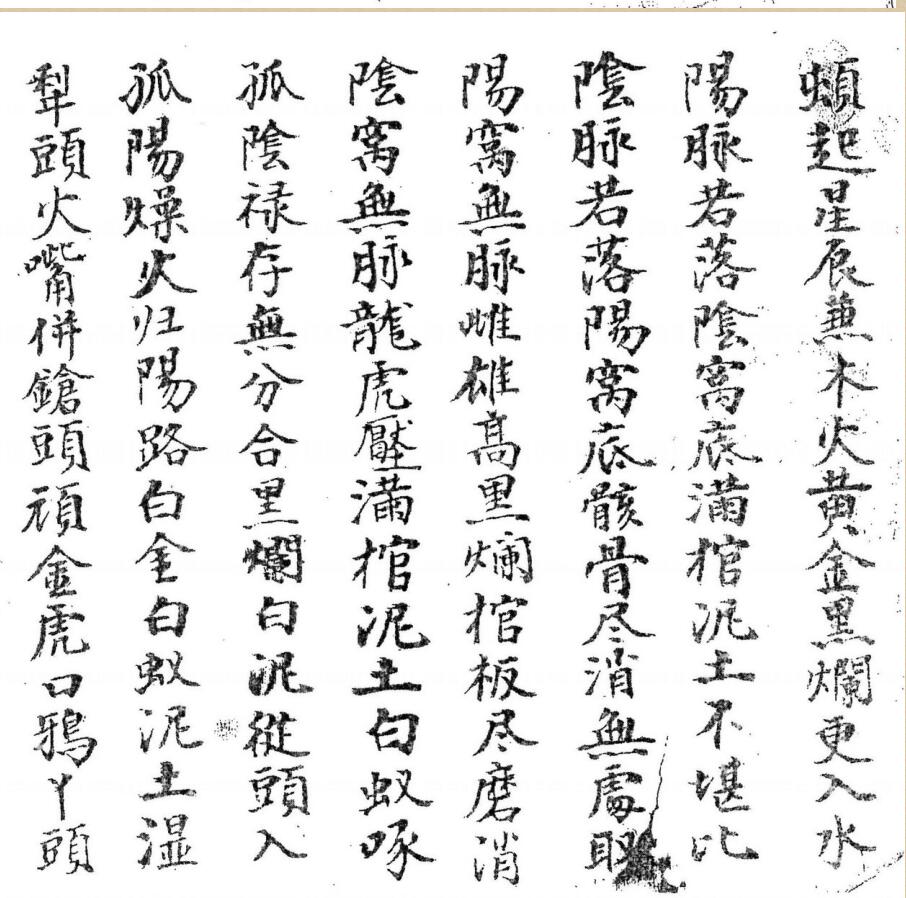 頫起星辰兼木火黄金黑爛更入水
陽脉若落陰窩底滿棺泥土不堪比
陰脉若落陽窩底骸骨尽消無處取
陽窩無脉雌雄髙黑爛棺板尽磨消
陰窩無脉龍虎壓滿棺泥土白蚁啄
孤陰禄存無分合黒爛白泥從頭入
孤陽燥火归陽路白金白蚁泥土湿
犁頭火嘴併鎗頭頑金虎口鴉丫頭